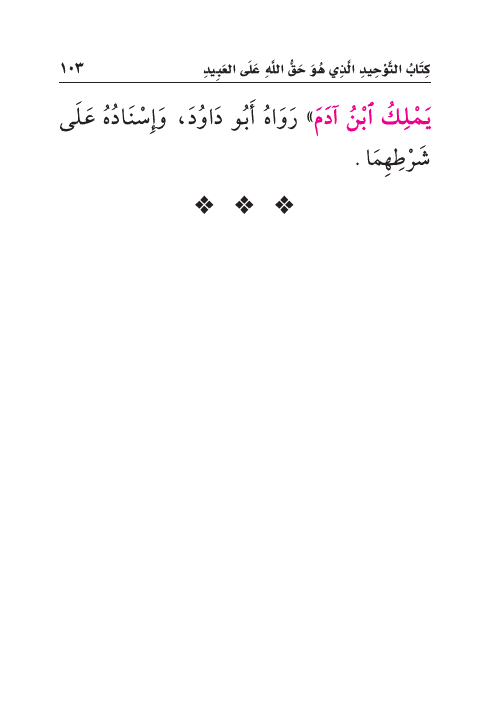 كِتَابُ التَّوْحِيدِ الَّذِي هُوَ حَقُّ اللَّهِ عَلَى العَبِيدِ ١٠٣
يَمْلِكُ ٱبْنُ آدَمَ» رَوَاهُ أَبُو دَاوُدَ، وَإِسْنَادُهُ عَلَى
شَرْطِهِمَا .
❖ ❖ ❖